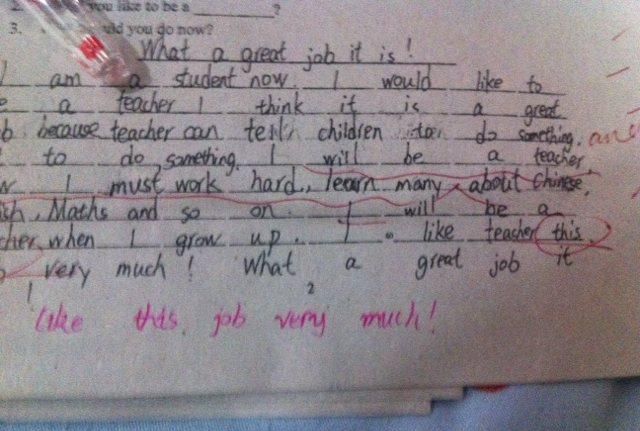 you like to be a ________?
3. ld you do now?
What a great job it is!
I am a student now. I would like to
a teacher I think it is a great
b because teacher can tech children to do something. an
to do something. I will be a teacher.
w I must work hard, learn many about Chinese,
ish, Maths and so on. I will be a
cher when I grow up. I like teacher this
very much! What a great job it
1 2
Like this job very much!